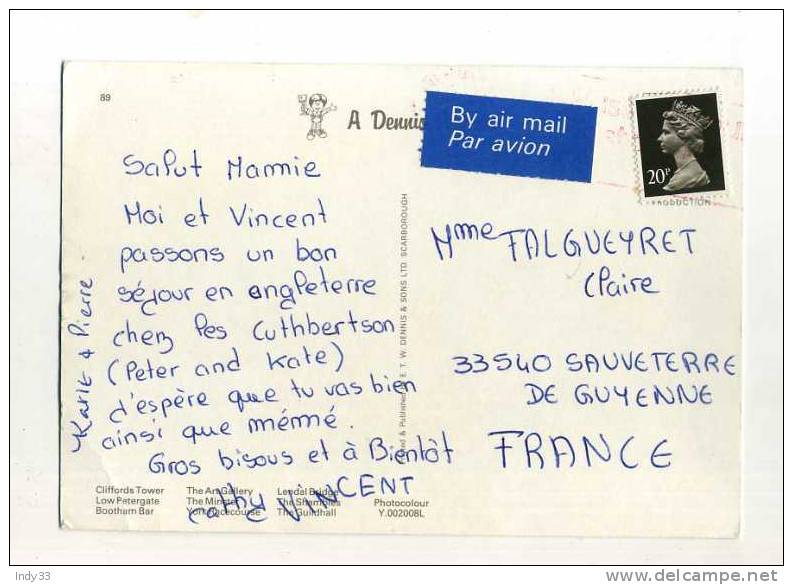 89
A Dennis
By air mail
Par avion
20P
PRODUCTION
Salut Mamie
Moi et Vincent
passons un bon
séjour en angleterre
chez les Cuthbertson
(Peter and Kate)
J'espère que tu vas bien
ainsi que mémé.
Gros bisous et à Bientôt
Cathy VINCENT
& Pierre
E. T. W. DENNIS & SONS LTD SCARBOROUGH
Mme FALGUEYRET
Claire
33540 SAUVETERRE
DE GUYENNE
FRANCE
Cliffords Tower The Art Gallery Lendal Bridge
Low Petergate The Minster The Shambles Photocolour
Bootham Bar York Racecourse The Guildhall Y.002008L
Indy33
delcampe.net